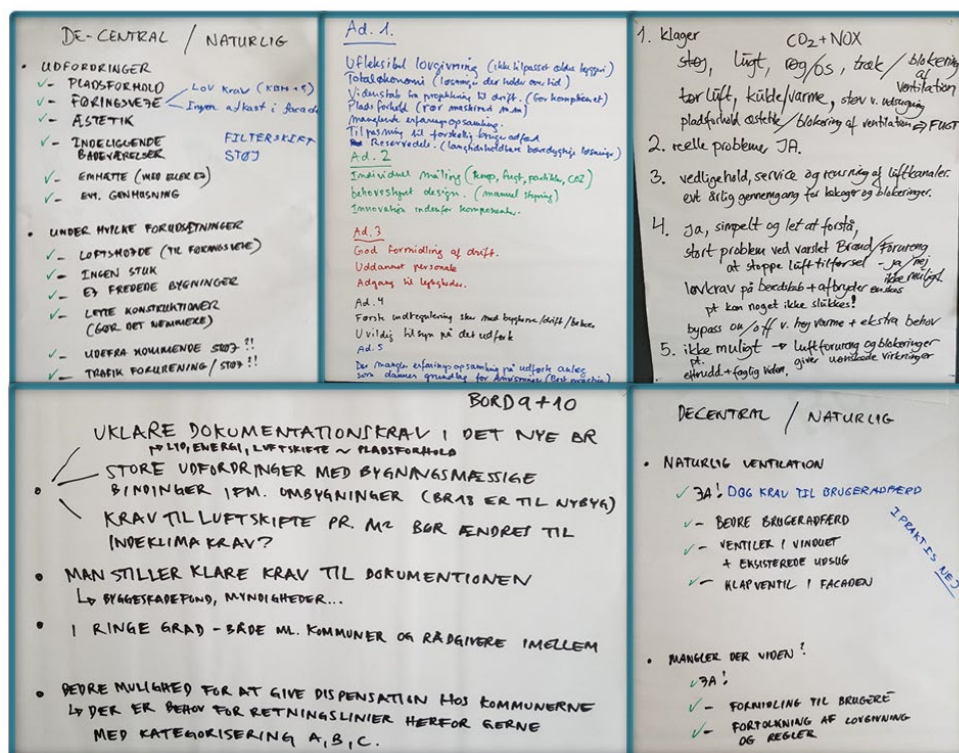 DE-CENTRAL / NATURLIG
• UDFORDRINGER
✓- PLADSFORHOLD
✓- FØRINGSVEJE
Lov krav (KBH + 5)
Ingen afkast i facade
✓- ÆSTETIK
✓- INDELIGGENDE
BADEVÆRELSER
FILTERSKIFT
STØJ
✓- EMHÆTTE (MED ELLER EJ)
✓- EVT. GENHUSNING
• UNDER HVILKE FORUDSÆTNINGER
✓- LOFTSHØJDE (TIL FØRINGSVEJE)
✓- INGEN STUK
✓- EJ FREDEDE BYGNINGER
✓- LETTE KONSTRUKTIONER
(GØR DET NEMMERE)
✓- UDEFRA KOMMENDE STØJ?!
✓- TRAFIK FORURENING/STØJ?!
Ad. 1.
Ufleksibel lovgivning (ikke tilpasset ældre byggeri)
Totaløkonomi (løsninger der holder over tid)
Videnstab fra projektering til drift. (Gør kompliceret)
Plads forhold (rør maskinrum m.m)
manglende erfaringsopsamling.
Tilpasning til forskellig brugeradfærd
Reservedele. (langtidsholdbare bæredygtige løsninger)
Ad. 2
Individuel måling (temp, fugt, partikler, CO2)
behovsstyret design. (manuel styring)
Innovation indenfor komponenter.
Ad. 3
God formidling af drift.
Uddannet personale
Adgang til lejligheder.
Ad. 4
Første indregulering sker med bygherre/drift/beboer
Uvildig tilsyn på det udførte
Ad. 5
Der mangler erfaringsopsamling på udførte anlæg
som danner grundlag for Anvisninger (Best practice)
1. klager CO2 + NOX
støj, lugt, røg/os, træk / blokering
af
ventilation
tør luft, kulde/varme, støv v. udsugning
pladforhold æstetik / blokering af ventilation ⇒ FUGT
2. reelle problemer JA.
3. vedligehold, service og rensning af luftkanaler.
evt årlig gennemgang for lækager og blokeringer.
4. Ja, simpelt og let at forstå,
stort problem ved varslet Brand/Forurening
at stoppe lufttilførsel - ja / nej
ikke muligt.
lovkrav på beredskab + afbryder ønskes
pt kan noget ikke slukkes!
bypass on/off v. høj varme + ekstra behov
5. ikke muligt → luftforurening og blokeringer
pt. giver uønskede virkninger
+ faglig viden.
BORD 9 + 10
UKLARE DOKUMENTATIONSKRAV I DET NYE BR
↳ LYD, ENERGI, LUFTSKIFTE ~ PLADSFORHOLD
• STORE UDFORDRINGER MED BYGNINGSMÆSSIGE
BINDINGER IFM. OMBYGNINGER (BR18 ER TIL NYBYG)
KRAV TIL LUFTSKIFTE PR. M2 BØR ÆNDRES TIL
INDEKLIMA KRAV?
• MAN STILLER KLARE KRAV TIL DOKUMENTIONEN
↳ BYGGESKADEFOND, MYNDIGHEDER...
• I RINGE GRAD - BÅDE ML. KOMMUNER OG RÅDGIVERE IMELLEM
• BEDRE MULIGHED FOR AT GIVE DISPENSATION HOS KOMMUNERNE
↳ DER ER BEHOV FOR RETNINGSLINIER HERFOR GERNE
MED KATEGORISERING A, B, C.
DECENTRAL / NATURLIG
• NATURLIG VENTILATION
✓ JA! DOG KRAV TIL BRUGERADFÆRD
✓- BEDRE BRUGERADFÆRD
I PRAKSIS NEJ
✓- VENTILER I VINDUET
+ EKSISTEREDE UDSUG
✓- KLAPVENTIL I FACADEN
• MANGLER DER VIDEN?
✓ JA!
✓- FORMIDLING TIL BRUGERE
✓- FORTOLKNING AF LOVGIVNING
OG REGLER